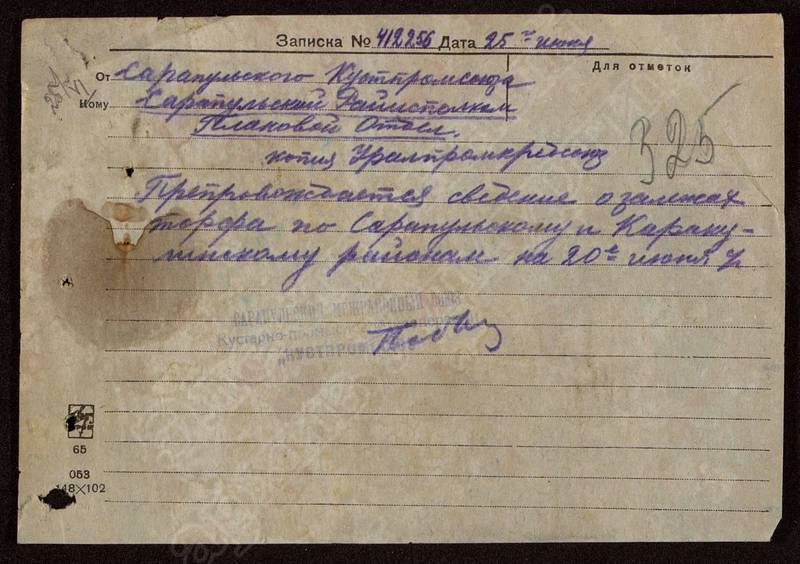 Записка № 412256 Дата 25го июня
Для отметок
От Сарапульского Кустпромсоюза
Кому Сарапульский Райисполком
Плановой Отдел.
копия Уралпромкредсоюз
325
Препровождается сведение о залежах
торфа по Сарапульскому и Караку-
линскому районам на 20е июня
САРАПУЛЬСКИЙ МЕЖРАЙОННЫЙ СОЮЗ
Кустарно-промысл
„КУСТПРОМСОЮЗ"
65
053
148×102